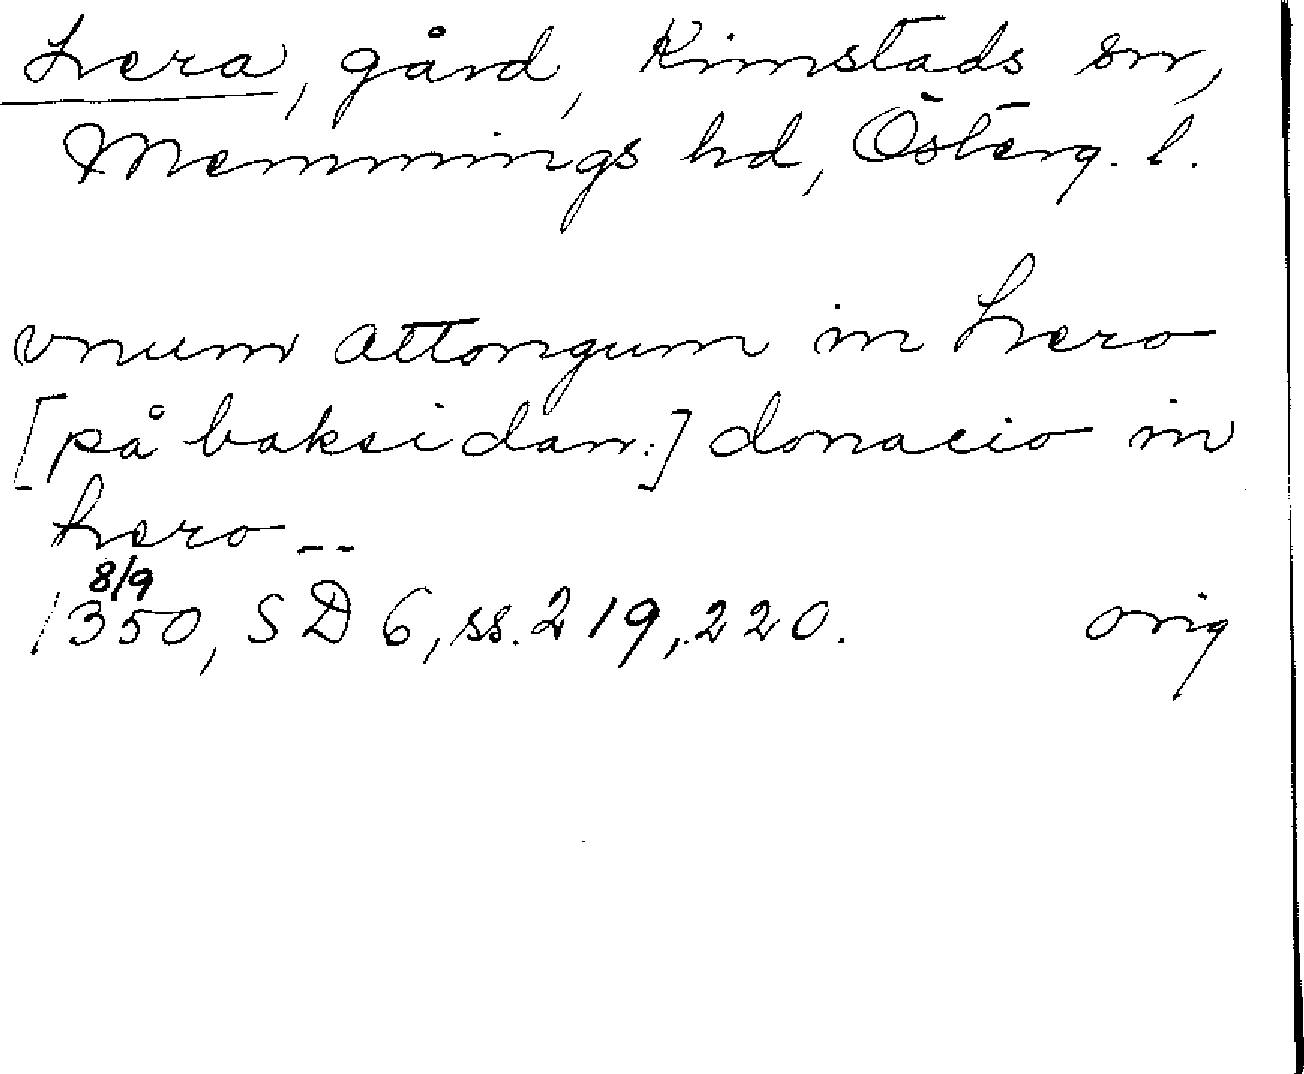 Hera, gård, Kimstads sn,
Memmings hd, Österg. l.
vnum attongum in Hero
[på baksidan:] donacio in
hero --
8/9
1350, SD 6, ss. 219, 220. orig